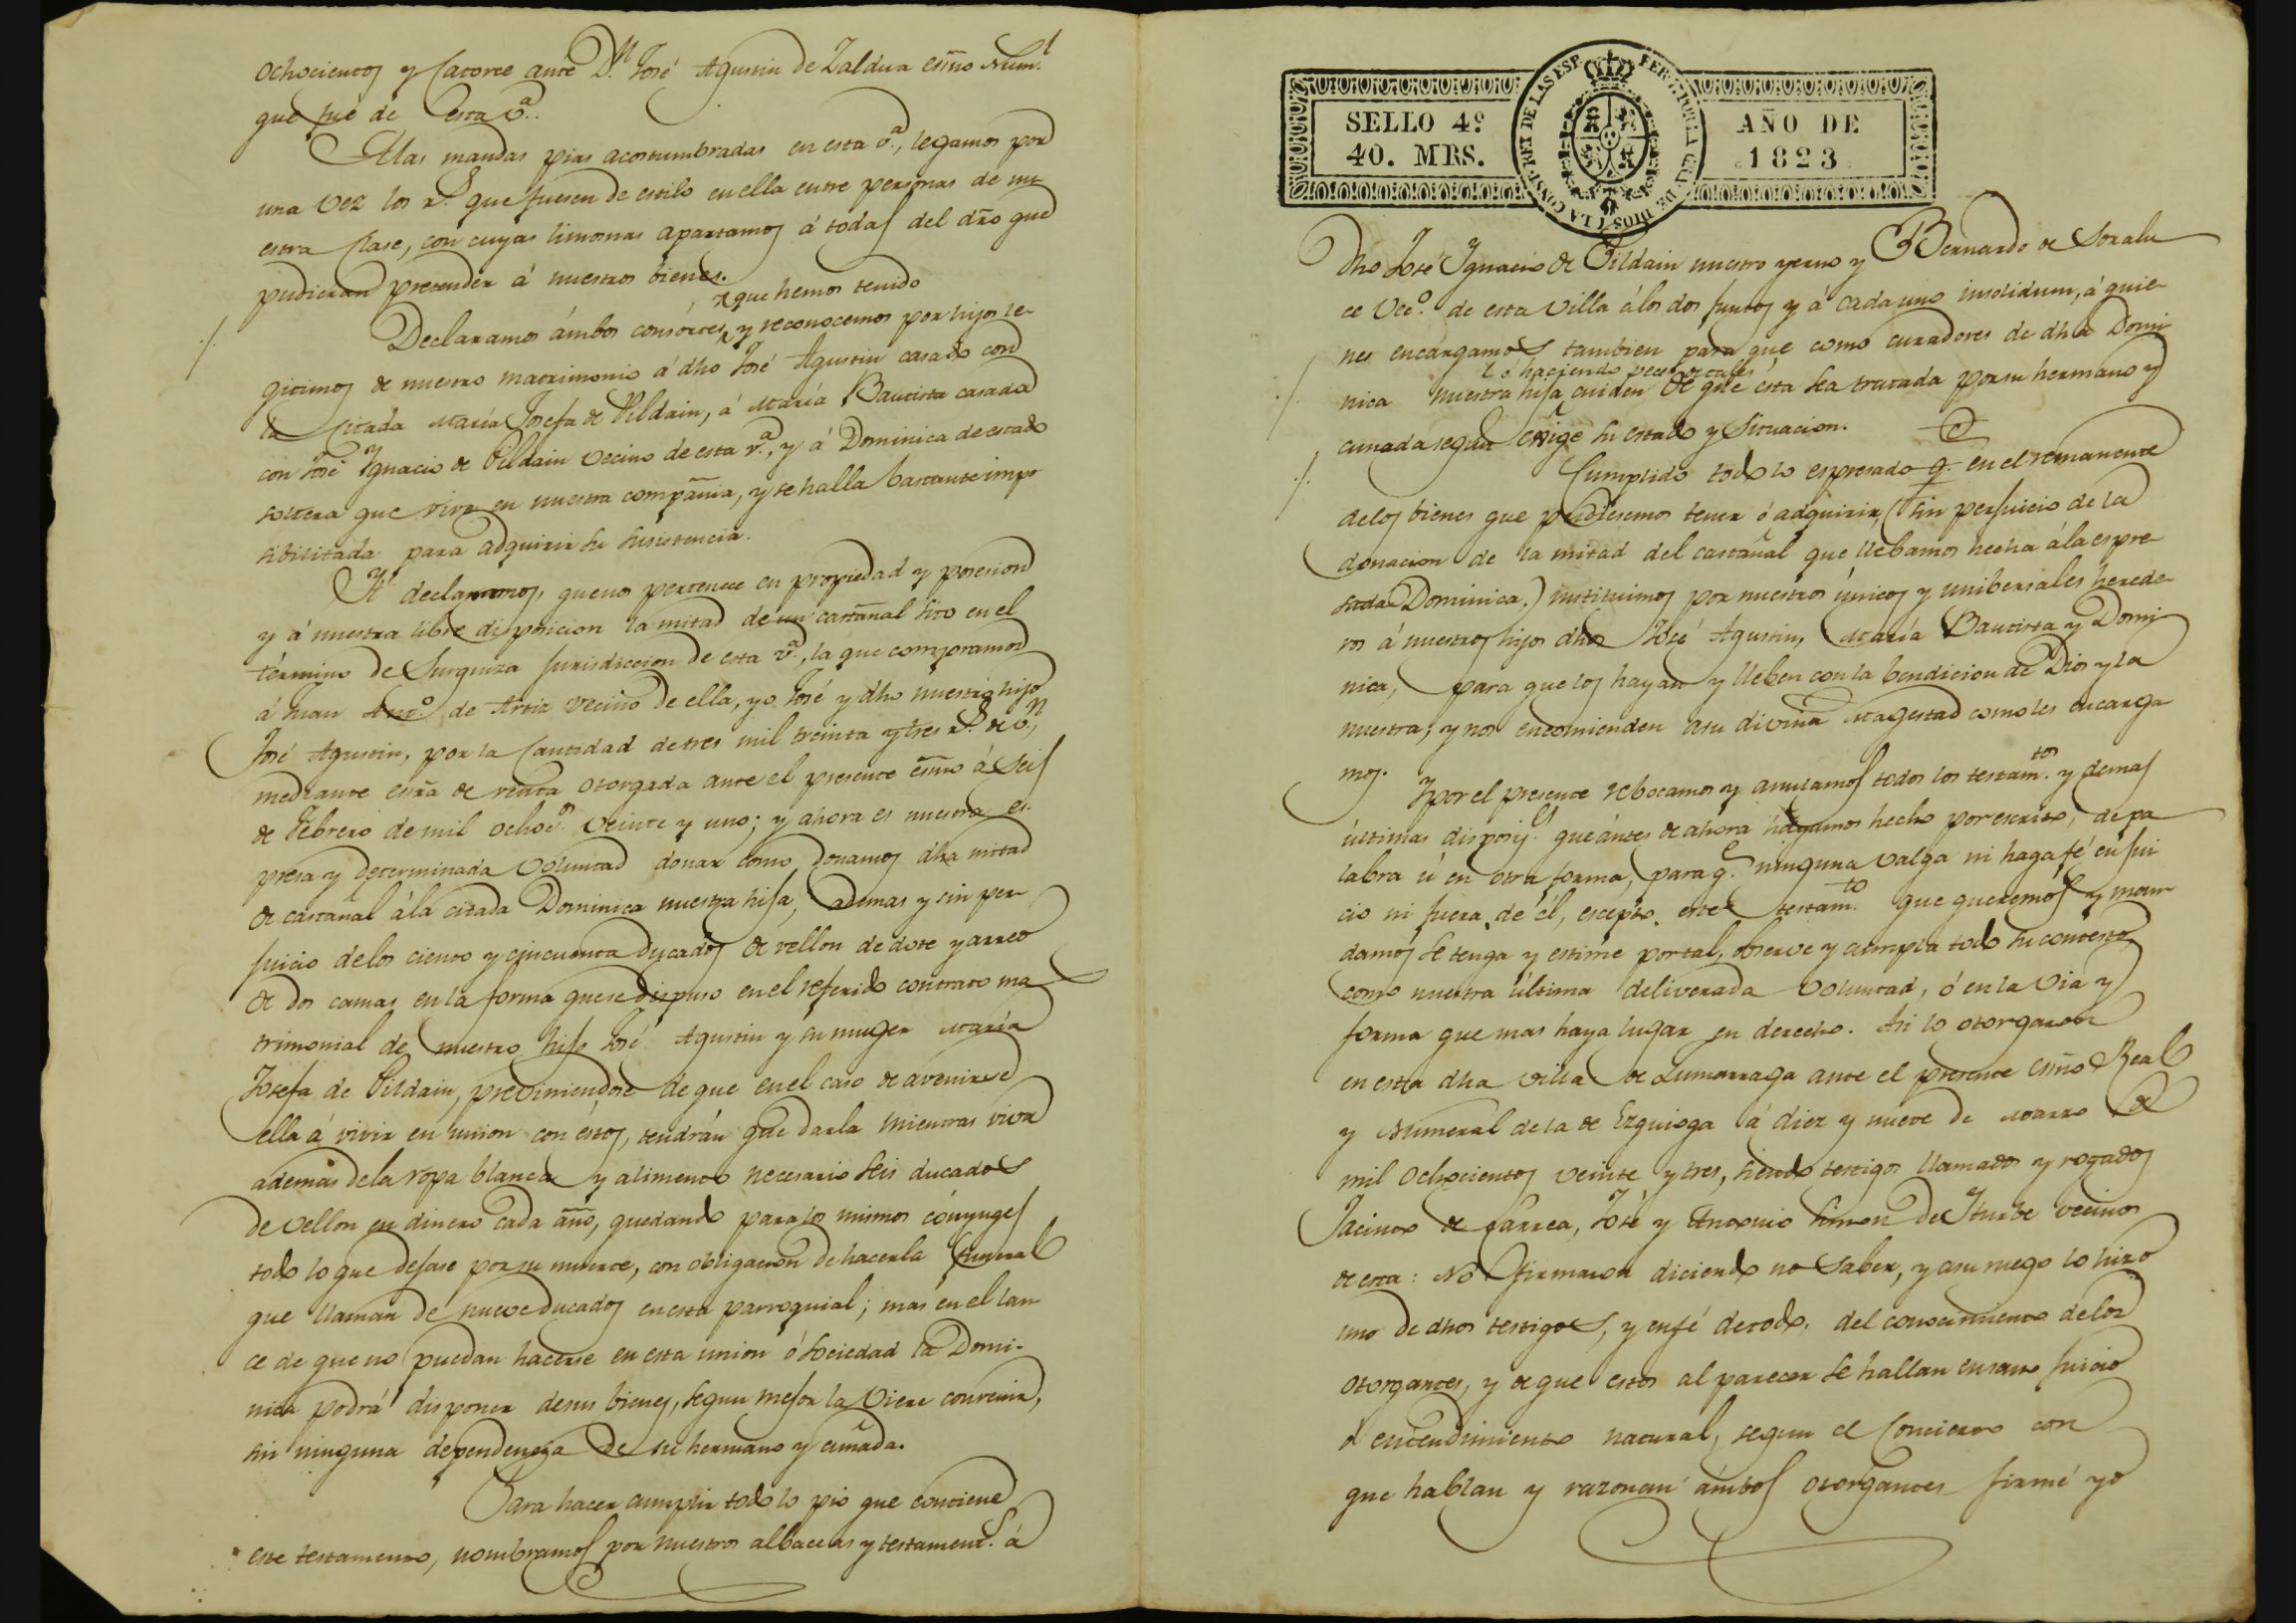 ochocientos y catorce ante D.n José Agustin de Zaldua esno Num.l
que fué de esta v.a.
A las mandas pias acostumbradas en esta v.a, legamos por
una vez los r.s que fuesen de estilo en ella entre personas de nu
estra clase, con cuyas limosnas apartamos á todas del dro que
pudieran pretender á nuestros bienes.
que hemos tenido
Declaramos ámbos consortes, y reconocemos por hijos le-
gitimos de nuestro matrimonio á dho José Agustin casado con
la citada María Josefa de Pildain, á María Bautista casada
con José Ignacio de Pildain vecino de esta v.a, y á Dominica de estado
soltera que vive en nuestra compañia, y se halla bastante impo
sibilitada para adquirir su susistencia.
Yt declaramos, que nos pertenece en propiedad y posesion
y á nuestra libre disposicion la mitad de un castañal sito en el
término de Surquiza jurisdiccion de esta v.a, la que compramos
á Juan Ant.o de Artiz vecino de ella, yo José y dho nuestro hijo
José Agustin, por la cantidad de tres mil treinta y tres r.s de v.n,
mediante esrra de venta otorgada ante el presente esno á seis
de Febrero de mil ochoc.s veinte y uno; y ahora es nuestra es-
presa y determinada voluntad donar como donamos dha mitad
de castañal á la citada Dominica nuestra hija, ademas y sin per-
juicio de los ciento y cincuenta ducados de vellon de dote y arreo
de dos camas en la forma que se dispuso en el referido contrato ma
trimonial de nuestro hijo José Agustin y su muger María
Josefa de Pildain, previniendose de que en el caso de avenirse
ella á vivir en union con éstos, tendrán que darla mientras viva
ademas de la ropa blanca y alimento necesario seis ducados
de vellon en dinero cada año, quedando para los mismos cónyuges
todo lo que dejase por su muerte, con obligacion de hacerla funeral
que llaman de nueve ducados en esta parroquial; mas en el lan
ce de que no puedan hacerse en esta union ó sociedad la Domi-
nica podrá disponer de sus bienes, segun mejor la viere convenir,
sin ninguna dependencia de su hermano y cuñada.
Para hacer cumplir todo lo pio que contiene
este testamento, nombramos por nuestros albaceas y testament.s á
SELLO 4º
40. MRS.
AÑO DE
1823
FER. 7º POR LA GRA. DE DIOS Y LA CONST. REY DE LAS ESP.
dho José Ignacio de Pildain nuestro yerno y Bernardo de Soralu
ce vec.o de esta villa á los dos juntos y á cada uno insolidum, á quie-
nes encargamos tambien para que como curadores de dha Domi
ló haciendo veces de tales
nica nuestra hija cuiden de que ésta sea tratada por su hermano y
cuñada segun exige su estado y situacion.
Cumplido todo lo espresado q. en el remanente
de los bienes que pudiesemos tener ó adquirir, (sin perjuicio de la
donacion de la mitad del castañal que llebamos hecha á la espre
sada Dominica.) instituimos por nuestros únicos y unibersales herede-
ros á nuestros hijos dhos José Agustin, María Bautista y Domi
nica, para que los hayan y lleben con la bendicion de Dios y la
nuestra, y nos encomienden a su divina Magestad como les encarga
mos.
Y por el presente rebocamos y anulamos todos los testam.tos y demas
últimas disposi.es que ántes de ahora háyamos hecho por escrito, de pa
labra ú en otra forma, para q.e ninguna valga ni haga fé en jui
cio ni fuera de él, escepto este testam.to que queremos y man-
damos se tenga y estime por tal, observe y cumpla todo su contesto
como nuestra última deliverada voluntad, ó en la via y
forma que mas haya lugar en derecho. Asi lo otorgaron
en esta dha villa de Zumarraga ante el presente esno Real
y Numeral de la de Ezquioga á diez y nueve de Marzo de
mil ochocientos veinte y tres, siendo testigos llamados y rogados
Jacinto de Larrea, José y Antonio Simon de Yturbe vecinos
de esta: No firmaron diciendo no saber, y a su ruego lo hizo
uno de dhos testigos, y en fé de todo, del conocimiento de los
otorgantes, y de que estos al parecer se hallan en sano juicio
ó entendimiento natural, segun el concierto con
que hablan y razonan ámbos otorgantes firmé yo